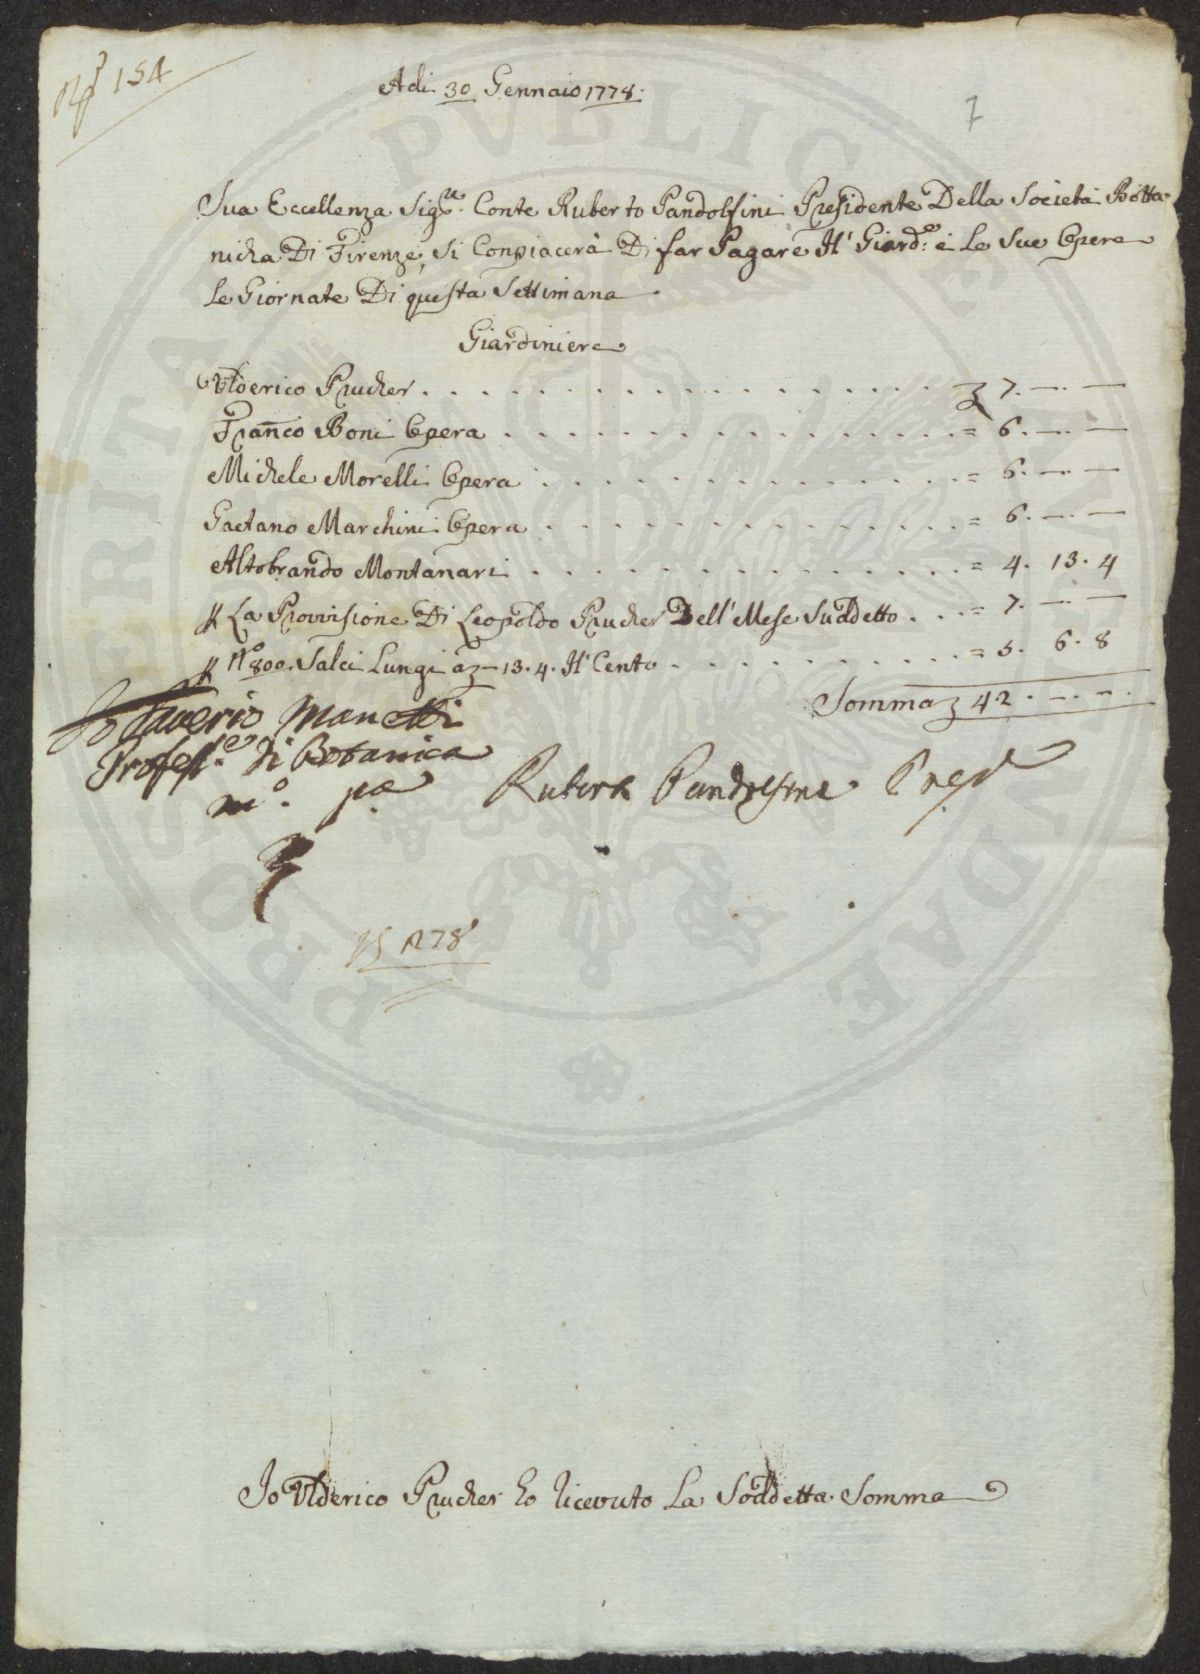 N° 154
Adi 30 Gennaio 1778.
7
Sua Eccellenza Sig.re Conte Ruberto Pandolfini Presidente Della Società Botta-
nicha Di Firenze, Si Conpiacerà Di far Pagare Il' Giard.e è Le Sue Opere
Le Giornate Di questa Settimana
Giardiniere
Ulderico Prucher . . . . . . . . £ 7. —. —
Franco Boni Opera . . . . . . . . = 6. —. —
Michele Morelli Opera . . . . . . . . = 6. —. —
Gaetano Marchini Opera . . . . . . . . = 6. —. —
Altobrando Montanari . . . . . . . . = 4. 13. 4
p La Provisione Di Leopoldo Prucher Dell' Mese Suddetto . . . = 7. —. —
p N° 800. Salci Lungi a £ — 13. 4. Il' Cento . . . . . . . . = 5. 6. 8
Somma £ 42. —. —.
Io Saverio Manetti
Profess.e di Botanica
m.o p.a
Ruberto Pandolfini Presd
1778
Io Ulderico Prucher ho ricevuto La Soddetta Somma
PROSPERITATI PVBLICAE